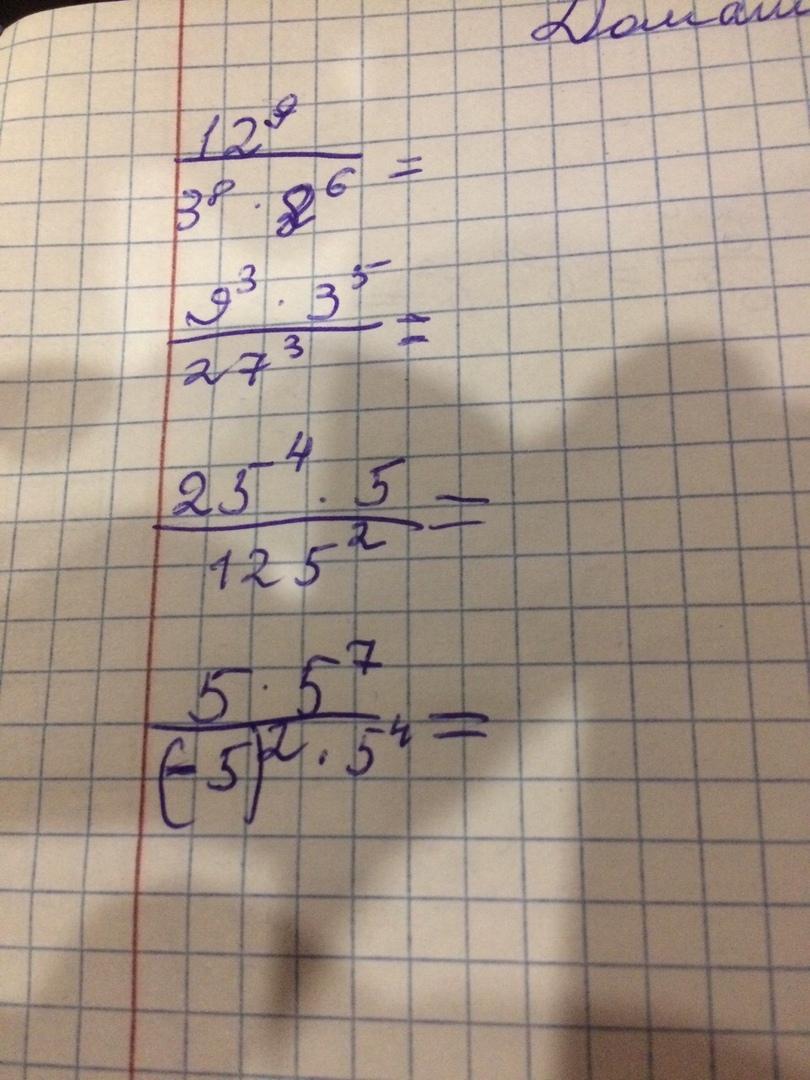 Домаш
12⁹
3⁸ · 8⁶ =
9³ · 3⁵
27³ =
25⁴ · 5
125² =
5 · 5⁷
(-5)² · 5⁴ =